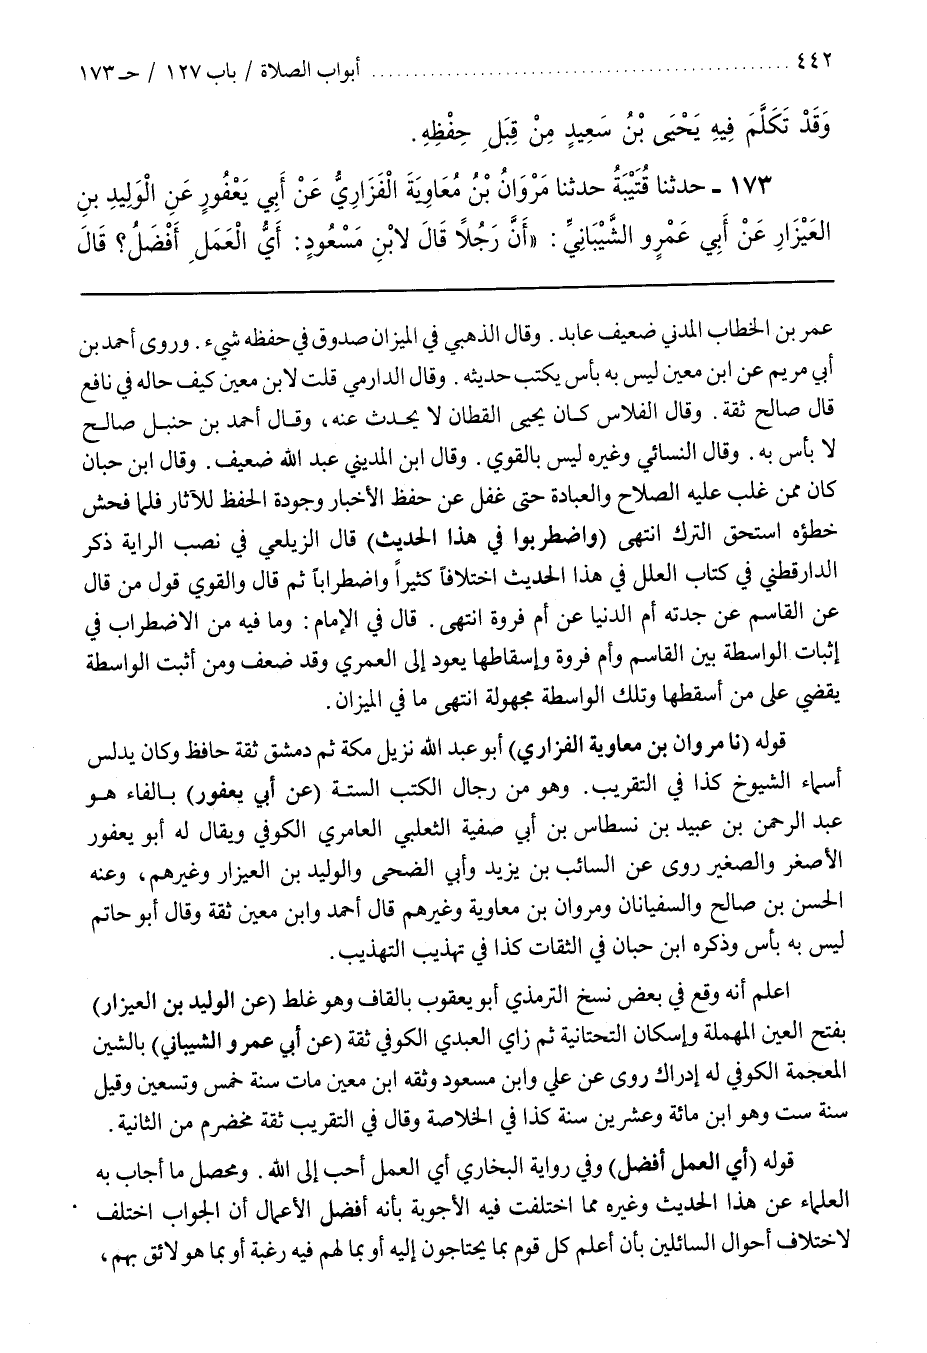 ٤٤٢ ........................................................ أبواب الصلاة / باب ١٢٧ / حـ ١٧٣
وَقَدْ تَكَلَّمَ فِيهِ يَحْيَى بْنُ سَعِيدٍ مِنْ قِبَلِ حِفْظِهِ.
١٧٣ ـ حدثنا قُتَيْبَةُ حدثنا مَرْوَانُ بْنُ مُعَاوِيَةَ الْفَزَارِيُّ عَنْ أَبِي يَعْفُورٍ عَنِ الْوَلِيدِ بنِ
العَيْزَارِ عَنْ أَبِي عَمْرٍو الشَّيْبَانِيِّ: «أَنَّ رَجُلاً قَالَ لابْنِ مَسْعُودٍ: أَيُّ الْعَمَلِ أَفْضَلُ؟ قَالَ
عمر بن الخطاب المدني ضعيف عابد. وقال الذهبي في الميزان صدوق في حفظه شيء. وروى أحمد بن
أبي مريم عن ابن معين ليس به بأس يكتب حديثه. وقال الدارمي قلت لابن معين كيف حاله في نافع
قال صالح ثقة. وقال الفلاس كان يحيى القطان لا يحدث عنه، وقال أحمد بن حنبل صالح
لا بأس به. وقال النسائي وغيره ليس بالقوي. وقال ابن المديني عبد الله ضعيف. وقال ابن حبان
كان ممن غلب عليه الصلاح والعبادة حتى غفل عن حفظ الأخبار وجودة الحفظ للآثار فلما فحش
خطؤه استحق الترك انتهى (واضطربوا في هذا الحديث) قال الزيلعي في نصب الراية ذكر
الدارقطني في كتاب العلل في هذا الحديث اختلافاً كثيراً واضطراباً ثم قال والقوي قول من قال
عن القاسم عن جدته أم الدنيا عن أم فروة انتهى. قال في الإمام: وما فيه من الاضطراب في
إثبات الواسطة بين القاسم وأم فروة وإسقاطها يعود إلى العمري وقد ضعف ومن أثبت الواسطة
يقضي على من أسقطها وتلك الواسطة مجهولة انتهى ما في الميزان.
قوله (نا مروان بن معاوية الفزاري) أبو عبد الله نزيل مكة ثم دمشق ثقة حافظ وكان يدلس
أسماء الشيوخ كذا في التقريب. وهو من رجال الكتب الستة (عن أبي يعفور) بالفاء هو
عبد الرحمن بن عبيد بن نسطاس بن أبي صفية الثعلبي العامري الكوفي ويقال له أبو يعفور
الأصغر والصغير روى عن السائب بن يزيد وأبي الضحى والوليد بن العيزار وغيرهم، وعنه
الحسن بن صالح والسفيانان ومروان بن معاوية وغيرهم قال أحمد وابن معين ثقة وقال أبو حاتم
ليس به بأس وذكره ابن حبان في الثقات كذا في تهذيب التهذيب.
اعلم أنه وقع في بعض نسخ الترمذي أبو يعقوب بالقاف وهو غلط (عن الوليد بن العيزار)
بفتح العين المهملة وإسكان التحتانية ثم زاي العبدي الكوفي ثقة (عن أبي عمرو الشيباني) بالشين
المعجمة الكوفي له إدراك روى عن علي وابن مسعود وثقه ابن معين مات سنة خمس وتسعين وقيل
سنة ست وهو ابن مائة وعشرين سنة كذا في الخلاصة وقال في التقريب ثقة مخضرم من الثانية.
قوله (أي العمل أفضل) وفي رواية البخاري أي العمل أحب إلى الله. ومحصل ما أجاب به
العلماء عن هذا الحديث وغيره مما اختلفت فيه الأجوبة بأنه أفضل الأعمال أن الجواب اختلف
لاختلاف أحوال السائلين بأن أعلم كل قوم بما يحتاجون إليه أو بما لهم فيه رغبة أو بما هو لائق بهم،